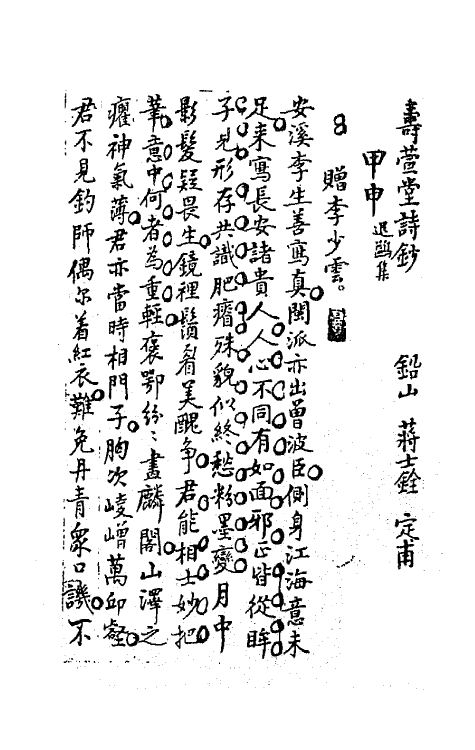 壽萱堂詩鈔 鉛山 蔣士銓 定甫
甲申 退鷗集
贈李少雲。
安溪李生善寫真閩派亦出曾波臣側身江海意未
足来寫長安諸貴人人心不同有如面邪正皆從眸
子見形存共識肥瘠殊貌似終愁粉墨變月中
影髮疑畏生鏡裡鬚眉美醜争君能相士妙把
筆意中何者為重輕褒鄂紛〻畫麟閣山澤之
癯神氣薄君亦當時相門子胸次崚嶒萬邱壑
君不見釣師偶尔着紅衣難免丹青衆口譏不